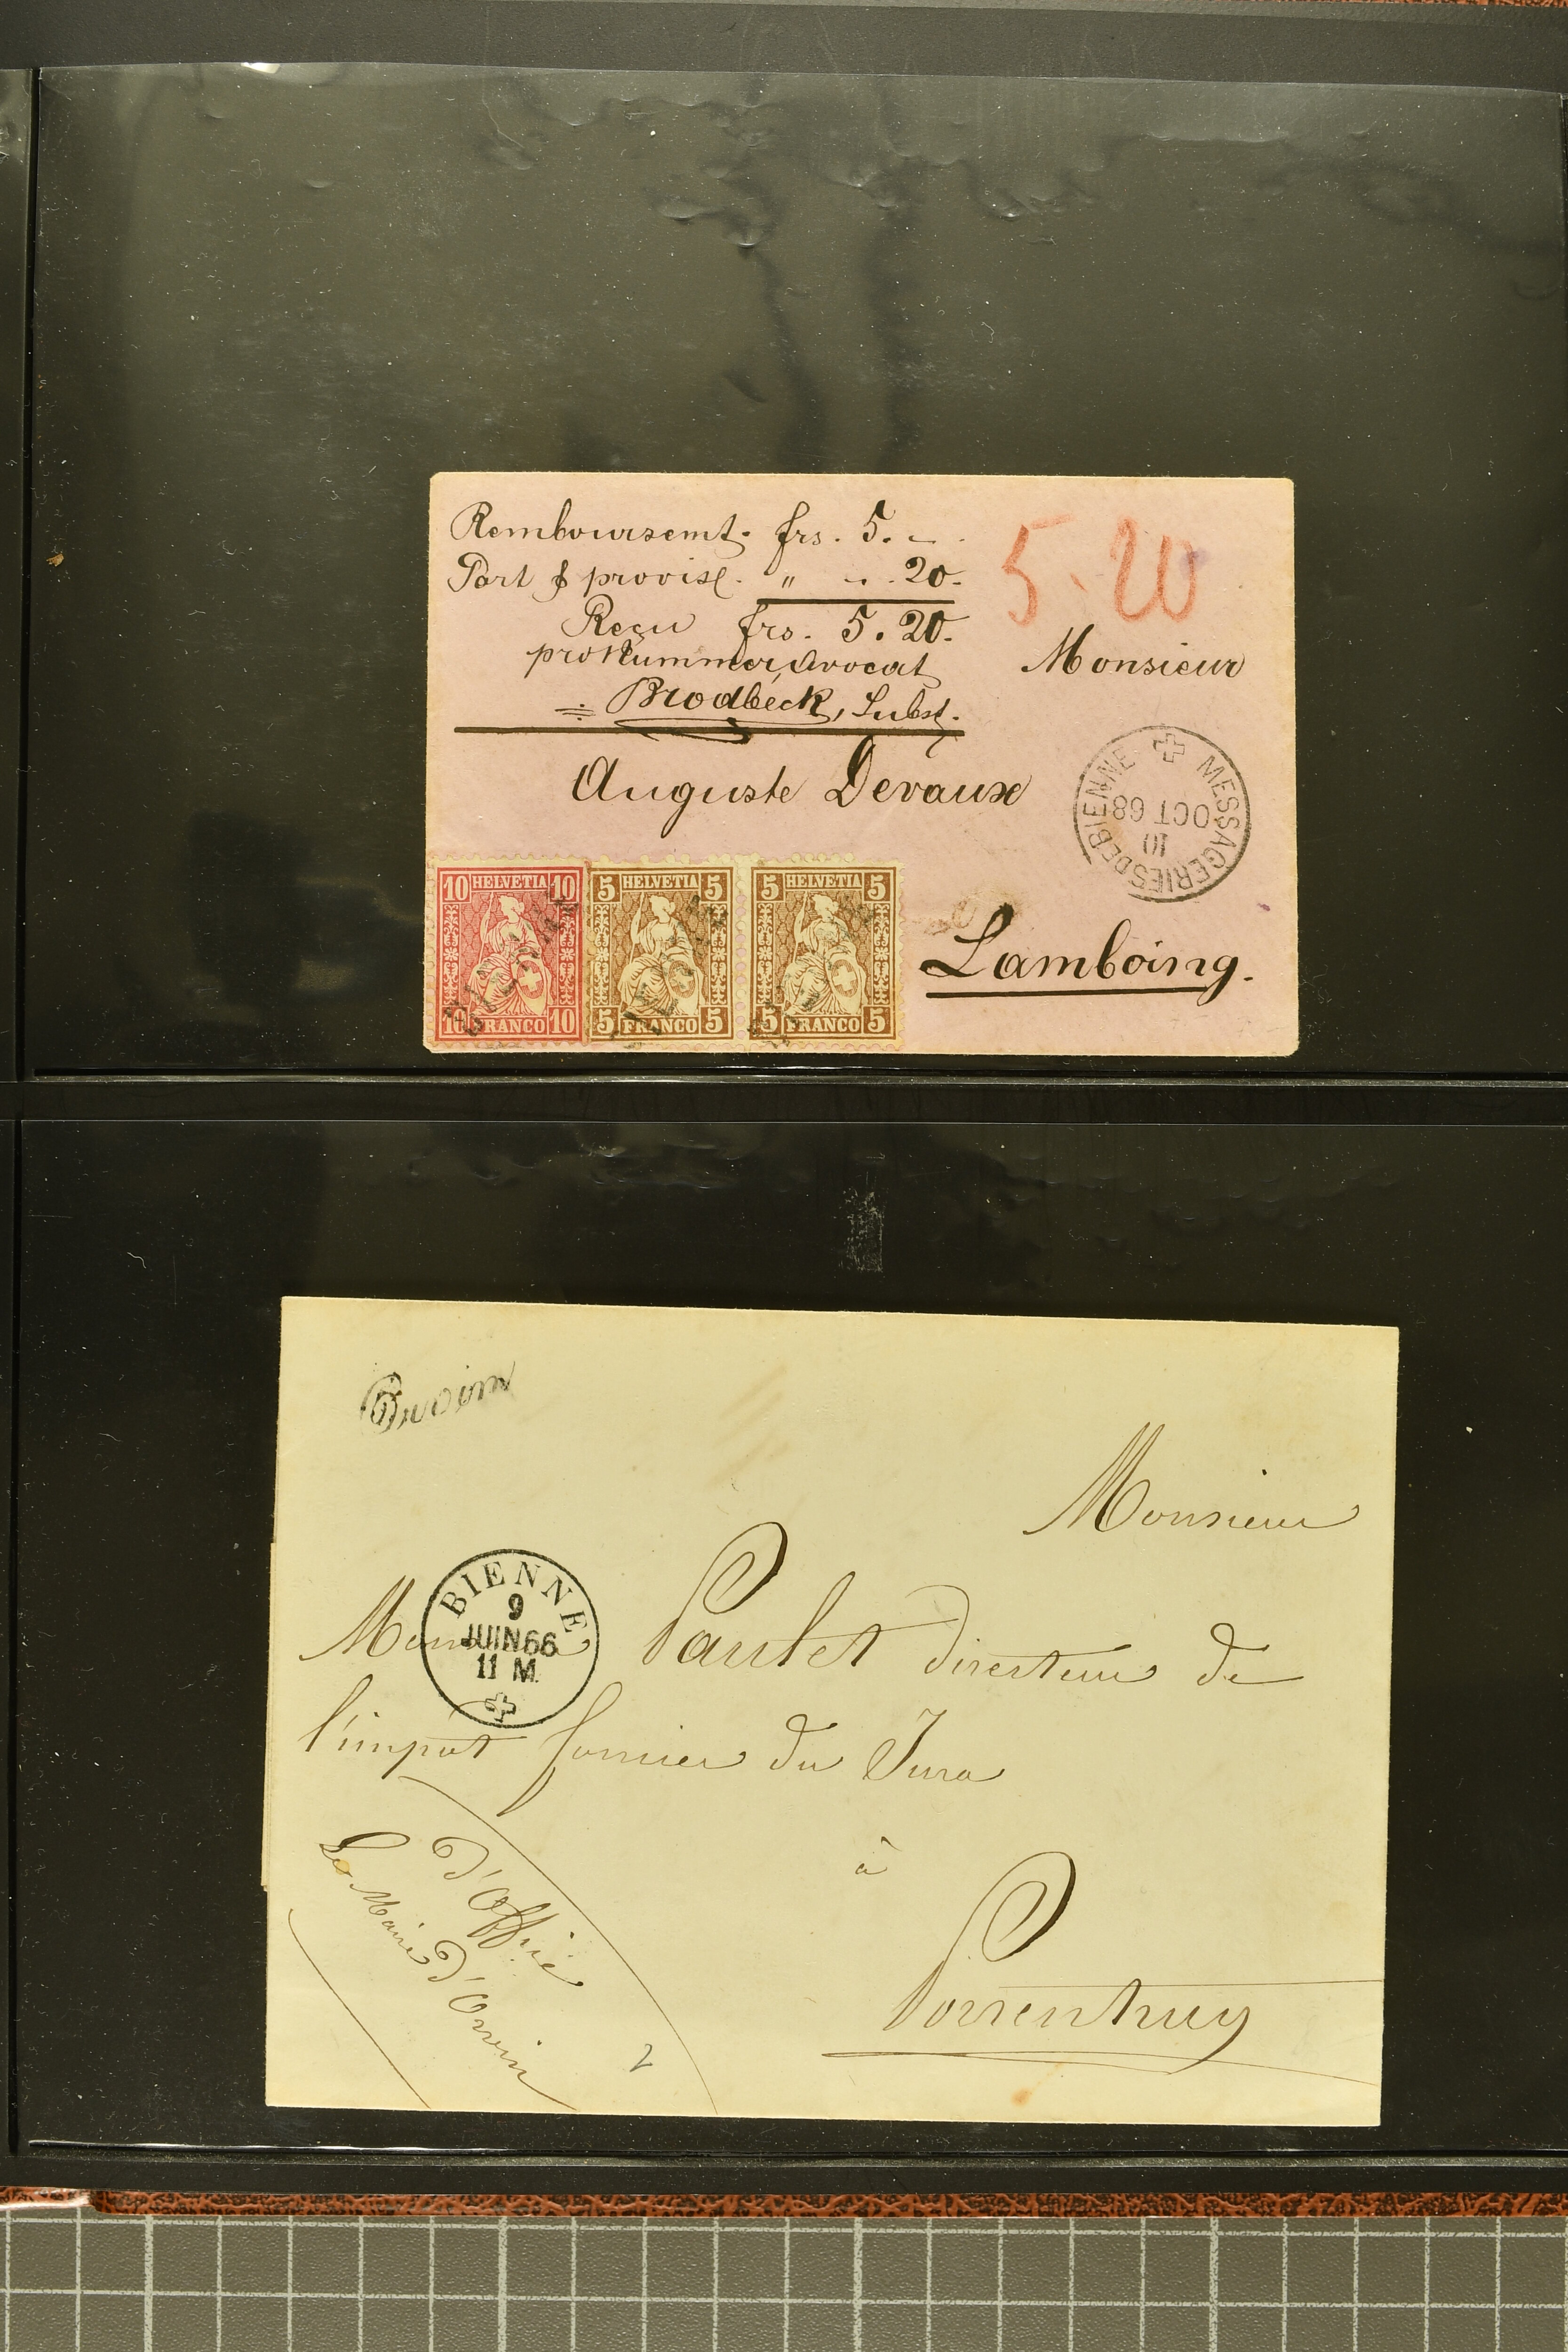 Remboursemt. frs. 5. –.
Port & provis. " -. 20.
Reçu frs. 5. 20.
pr Kummer, Avocat
Brodbeck, Subst.
5.20
Monsieur
Auguste Devaux
MESSAGERIES DE BIENNE
10
OCT 68
10 HELVETIA 10
10 FRANCO 10
5 HELVETIA 5
5 FRANCO 5
5 HELVETIA 5
5 FRANCO 5
BIENNE
BIENNE
BIENNE
Lamboing.
Orvin
Monsieur
BIENNE
9
JUIN 66
11 M
Monsieur Paulet directeur de
l'impôt foncier du Jura
à
Porrentruy
d'Office
Le Maire d'Orvin
2